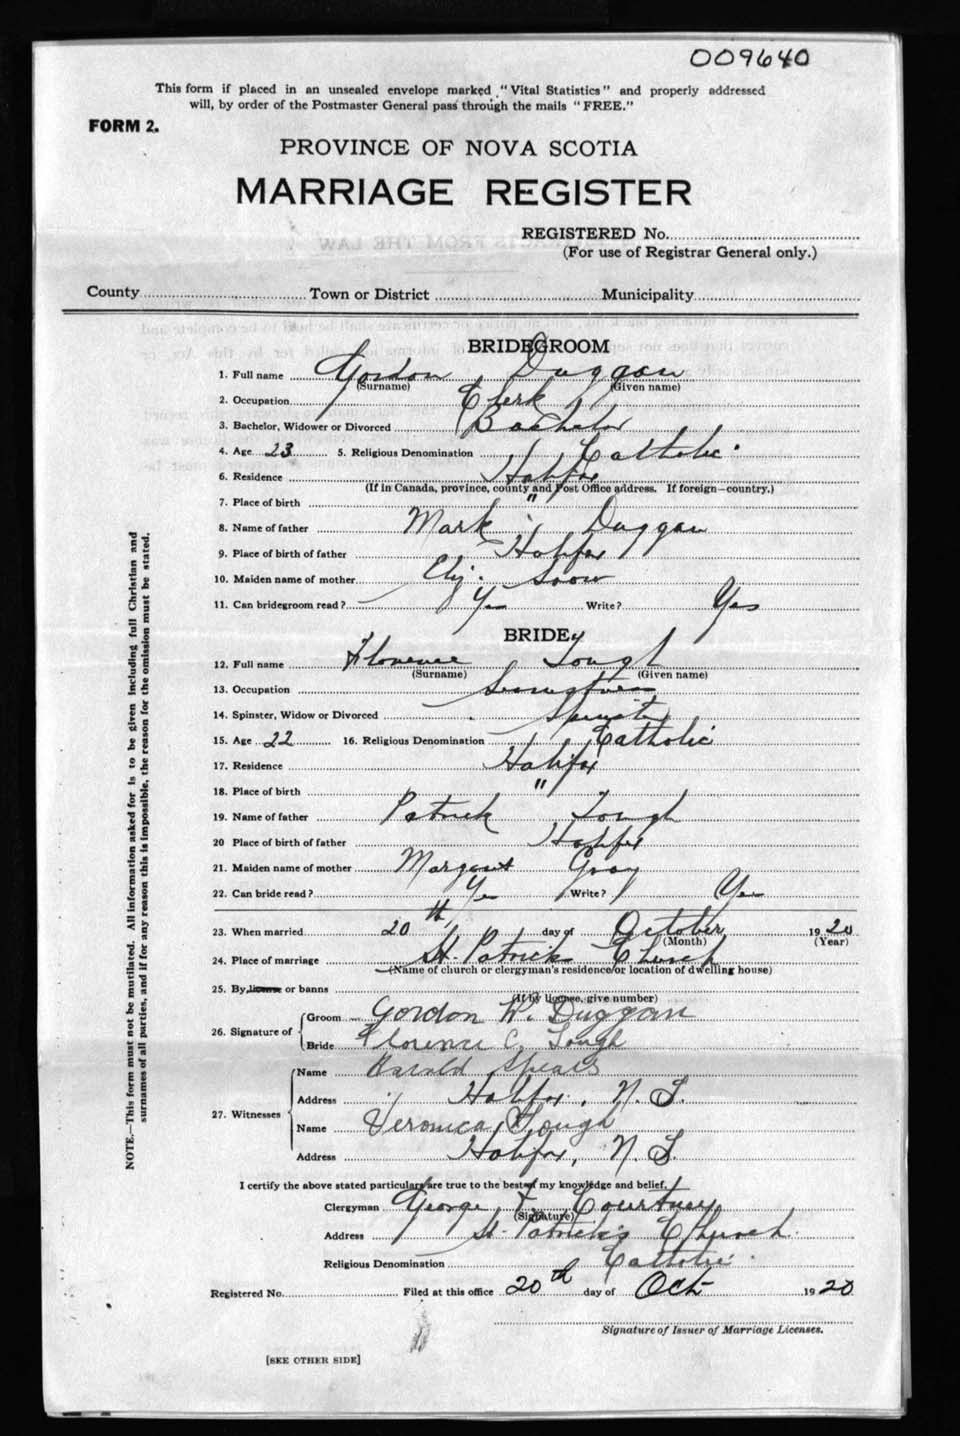 009640
This form if placed in an unsealed envelope marked "Vital Statistics" and properly addressed
will, by order of the Postmaster General pass through the mails "FREE."
FORM 2.
PROVINCE OF NOVA SCOTIA
MARRIAGE REGISTER
REGISTERED No.
(For use of Registrar General only.)
County Town or District Municipality
BRIDEGROOM
1. Full name Gordon Duggan
(Surname) (Given name)
2. Occupation Clerk
3. Bachelor, Widower or Divorced Bachelor
4. Age 23 5. Religious Denomination Catholic
6. Residence Halifax
(If in Canada, province, county and Post Office address. If foreign—country.)
7. Place of birth "
8. Name of father Mark Duggan
9. Place of birth of father Halifax
10. Maiden name of mother Eliz. Snow
11. Can bridegroom read? Yes Write? Yes
BRIDE
12. Full name Florence Tough
(Surname) (Given name)
13. Occupation Seamstress
14. Spinster, Widow or Divorced Spinster
15. Age 22 16. Religious Denomination Catholic
17. Residence Halifax
18. Place of birth "
19. Name of father Patrick Tough
20 Place of birth of father Halifax
21. Maiden name of mother Margaret Gray
22. Can bride read? Yes Write? Yes
23. When married 20th day of October 1920
(Month) (Year)
24. Place of marriage St. Patricks Church
(Name of church or clergyman's residence or location of dwelling house)
25. By license or banns
(If by license, give number)
26. Signature of Groom Gordon W. Duggan
Bride Florence C. Tough
27. Witnesses Name Harold Spears
Address Halifax, N. S.
Name Veronica Tough
Address Halifax, N. S.
I certify the above stated particulars are true to the best of my knowledge and belief.
Clergyman George F. Courtney
(Signature)
Address St. Patrick's Church.
Religious Denomination Catholic
Registered No. Filed at this office 20th day of Oct 1920
Signature of Issuer of Marriage Licenses.
[SEE OTHER SIDE]
NOTE.—This form must not be mutilated. All information asked for is to be given including full Christian and
surnames of all parties, and if for any reason this is impossible, the reason for the omission must be stated.